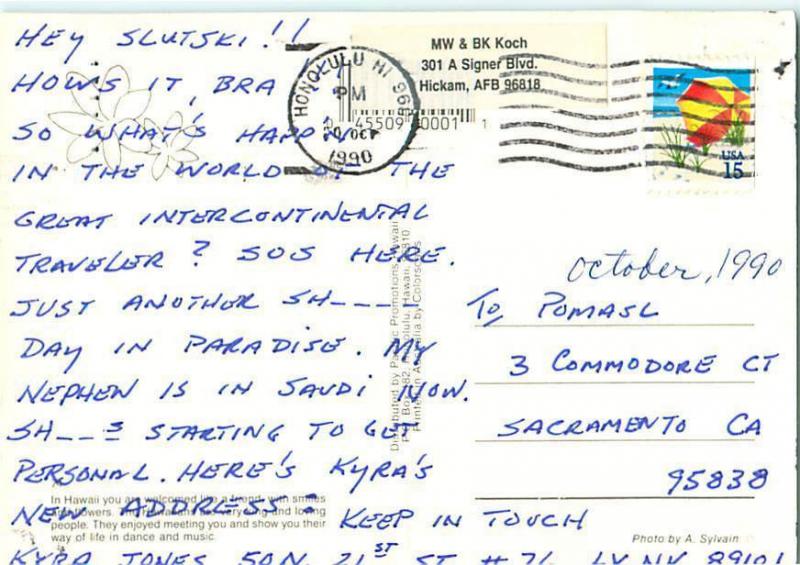 HEY SLUTSKI!!
HOW'S IT, BRA
SO WHAT'S
IN THE WORLD OF THE
GREAT INTERCONTINENTAL
TRAVELER? SOS HERE.
JUST ANOTHER SH____
DAY IN PARADISE. MY
NEPHEW IS IN SAUDI NOW.
SH__S STARTING TO GET
PERSONAL. HERE'S KYRA'S
NEW ADDRESS:
KEEP IN TOUCH
KYRA JONES 50 N. 21ST ST #76 LV NV 89101
In Hawaii you are welcomed like a friend, with smiles
and flowers. The Hawaiians are very and loving
people. They enjoyed meeting you and show you their
way of life in dance and music.
MW & BK Koch
301 A Signer Blvd.
Hickam, AFB 96818
HONOLULU HI 968
PM
OCT
1990
45509 0001 1
USA
15
Distributed by Pacific Promotions, Hawaii
Honolulu, Hawaii,
Printed in Australia by
october, 1990
To POMASL
3 COMMODORE CT
SACRAMENTO CA
95838
Photo by A. Sylvain